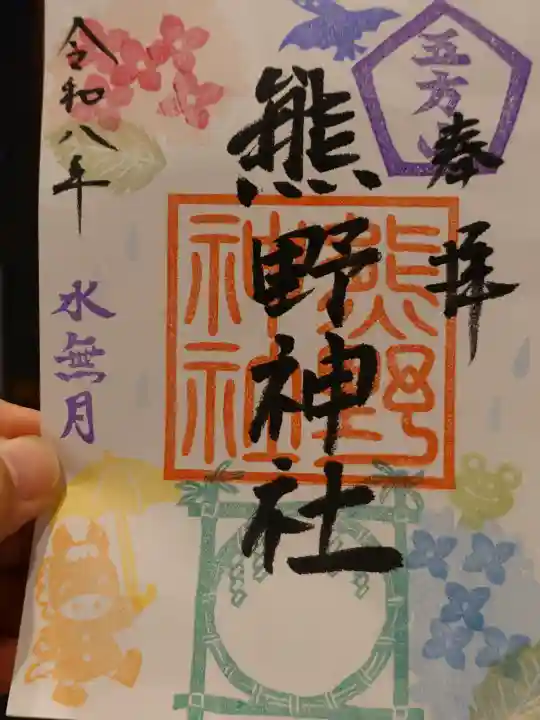 五方山
奉拝
熊野神社
熊野
神社
令和八年
水無月